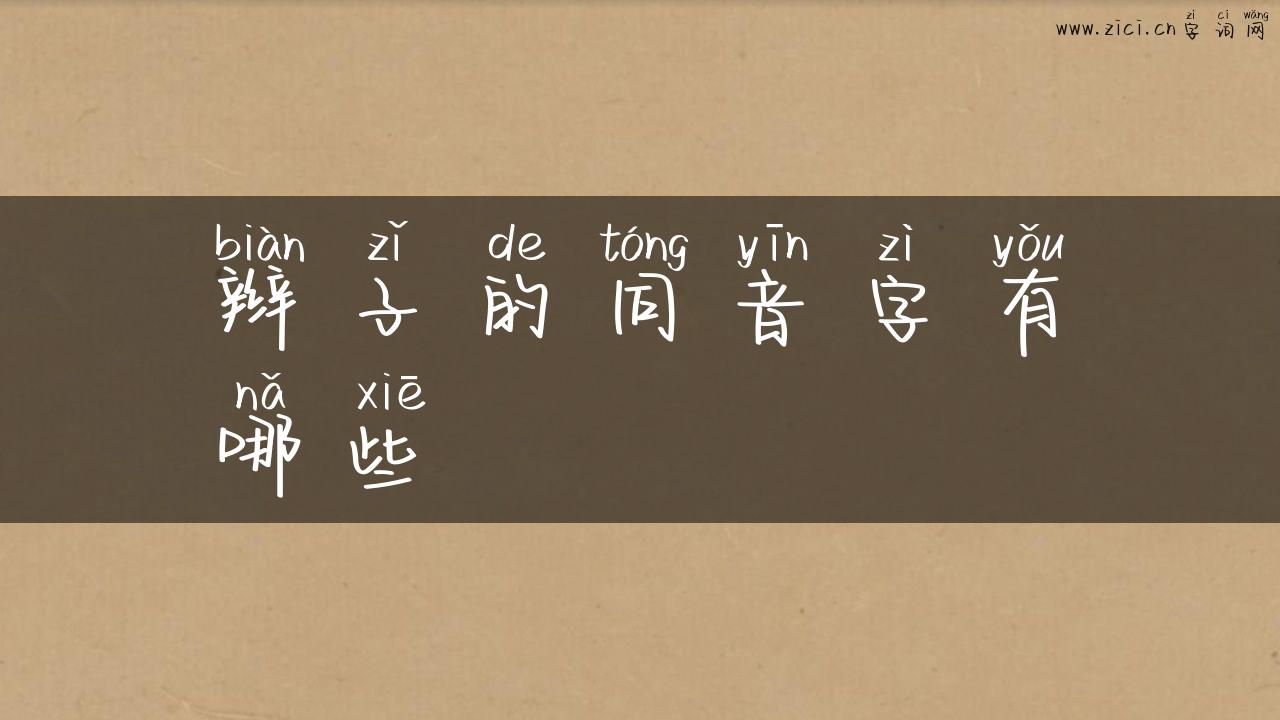 zì cí wǎng
www.zici.cn字词网
biàn zǐ de tóng yīn zì yǒu
辫子的同音字有
nǎ xiē
哪些